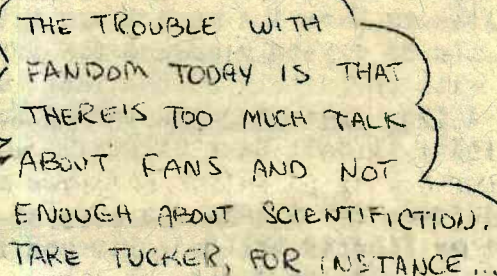 THE TROUBLE WITH
FANDOM TODAY IS THAT
THERE'S TOO MUCH TALK
ABOUT FANS AND NOT
ENOUGH ABOUT SCIENTIFICTION.
TAKE TUCKER, FOR INSTANCE...